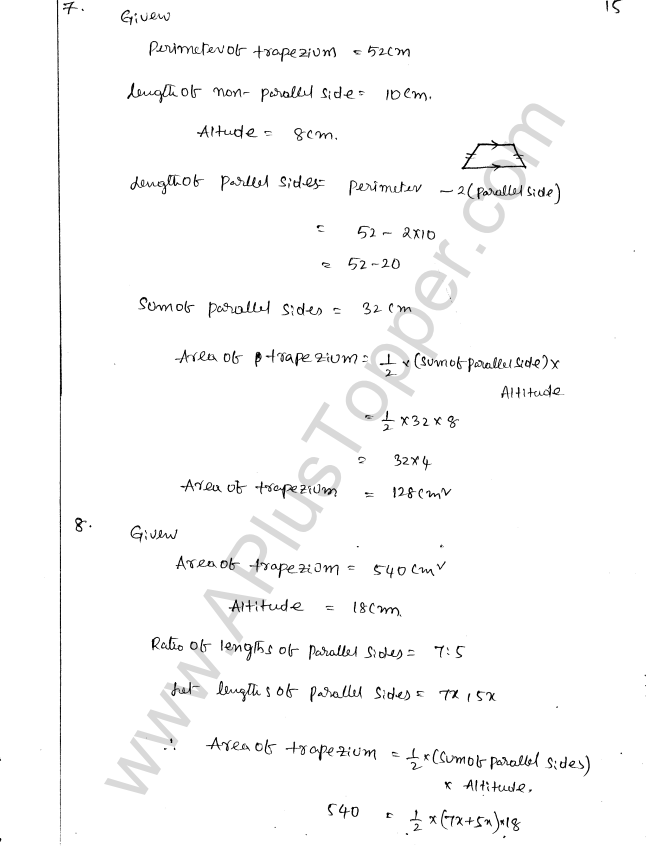 7.
15
Given
Perimeter of trapezium = 52cm
Length of non-parallel side = 10cm.
Altude = 8cm.
Length of Parllel sides = perimeter - 2(parallel side)
= 52 - 2×10
= 52-20
Sum of parallel sides = 32cm
Area of trapezium = 1/2 × (sum of parallel side) ×
Altitude
= 1/2 × 32 × 8
= 32×4
Area of trapezium = 128cm²
8.
Given
Area of trapezium = 540cm²
Altitude = 18cm.
Ratio of lengths of parallel sides = 7:5
Let lengths of parallel sides = 7x, 5x
∴ Area of trapezium = 1/2 × (sum of parallel sides)
× Altitude.
540 = 1/2 × (7x+5x) × 18
www.APlusTopper.com